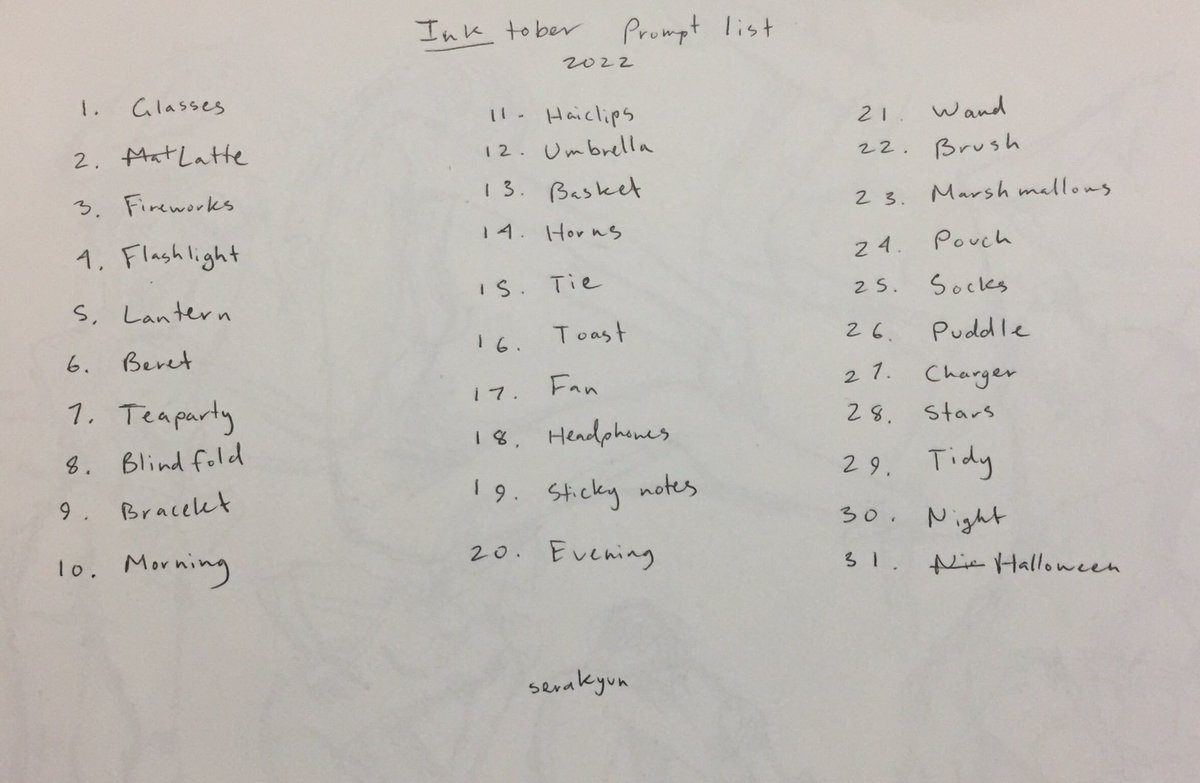 Ink tober Prompt list
2022
1. Glasses
2. Mat Latte
3. Fireworks
4. Flashlight
5. Lantern
6. Beret
7. Teaparty
8. Blindfold
9. Bracelet
10. Morning
11. Haiclips
12. Umbrella
13. Basket
14. Horns
15. Tie
16. Toast
17. Fan
18. Headphones
19. Sticky notes
20. Evening
21. Wand
22. Brush
23. Marshmallows
24. Pouch
25. Socks
26. Puddle
27. Charger
28. Stars
29. Tidy
30. Night
31. Nig Halloween
serakyun